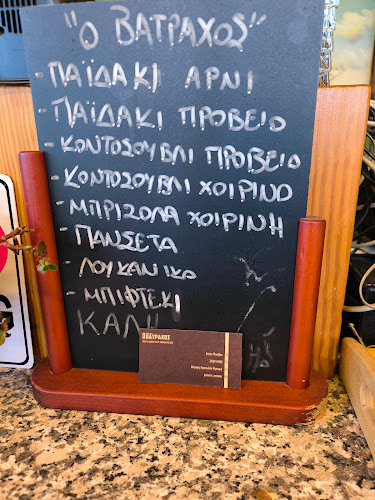 "Ο ΒΑΤΡΑΧΟΣ"
- ΠΑΪΔΑΚΙ ΑΡΝΙ
- ΠΑΪΔΑΚΙ ΠΡΟΒΕΙΟ
- ΚΟΝΤΟΣΟΥΒΛΙ ΠΡΟΒΕΙΟ
- ΚΟΝΤΟΣΟΥΒΛΙ ΧΟΙΡΙΝΟ
- ΜΠΡΙΖΟΛΑ ΧΟΙΡΙΝΗ
- ΠΑΝΣΕΤΑ
- ΛΟΥΚΑΝΙΚΟ
- ΜΠΙΦΤΕΚΙ
ΚΑΛ
ΒΑΤΡΑΧΟΣ